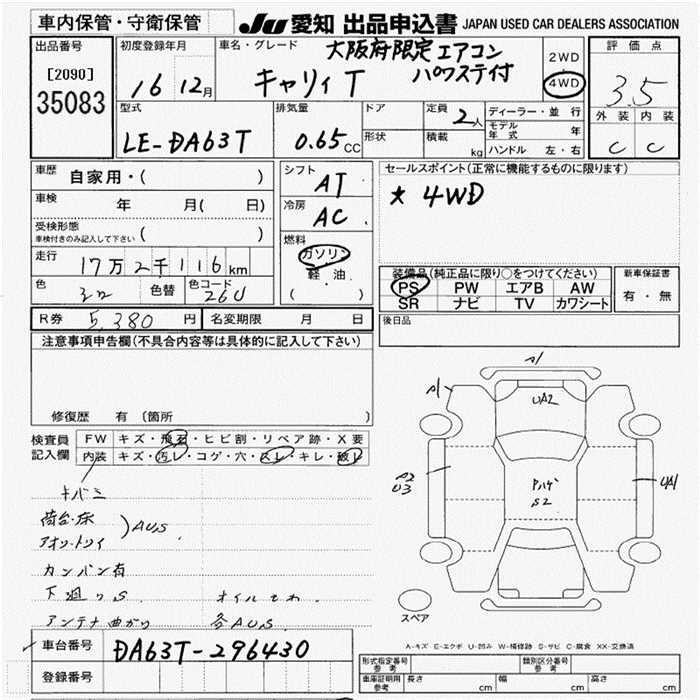 車内保管・守衛保管
JU 愛知 出品申込書 JAPAN USED CAR DEALERS ASSOCIATION
出品番号
[2090]
35083
初度登録年月
16 12月
車名・グレード
大阪府限定 エアコン
キャリィ T パワステ付
2WD
4WD
評価点
3.5
外装 内装
C C
型式
LE-DA63T
排気量
0.65 CC
ドア
形状
定員 2人
積載 kg
ディーラー・並行
モデル年式 年
ハンドル 左・右
車歴 自家用・( )
車検 年 月( 日)
受検形態
車検付きのみ記入して下さい ( )
走行 17万2千116km
色 色替 色コード 26U
シフト AT
冷房 AC
燃料
ガソリン
軽油
( ・ )
セールスポイント(正常に機能するものに限ります)
★ 4WD
装備品(純正品に限り○をつけてください)
PS PW エアB AW
SR ナビ TV カワシート
新車保証書
有・無
R券 5,380 円 名変期限 月 日
後日品
注意事項申告欄(不具合内容等は具体的に記入して下さい)
修復歴 有 (箇所 )
検査員記入欄
FW キズ・飛石・ヒビ割・リペア跡・X要
内装 キズ・汚レ・コゲ・穴・スレ・キレ・破レ
キバミ
荷台・床
アオリ・トリイ
AUS
カンバン有
下廻りS
アンテナ曲がり 各AUS
A1
A1
UA2
A2
U3
S2
UA1
スペア
A-キズ E-エクボ U-凹み W-補修跡 S-サビ C-腐食 XX-交換済
✓ 車台番号 DA63T-296430
登録番号
形式指定番号 参考
類別区分番号 参考
車庫証明用 参考
長さ cm 幅 cm 高さ cm